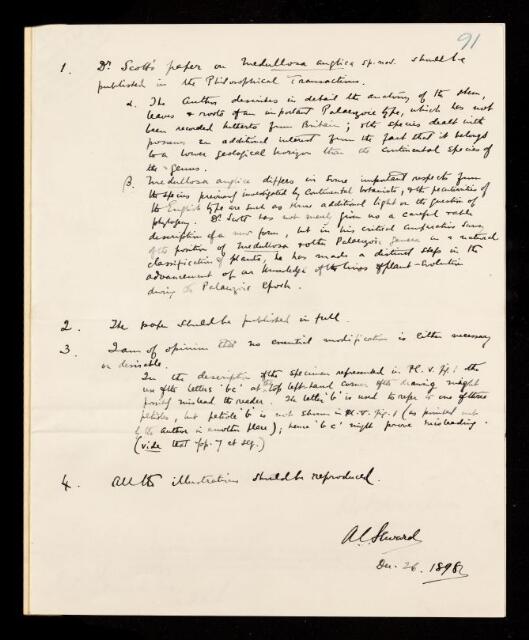 91
1. Dr. Scott's paper on Medullosa anglica sp. nov. should be
published in the Philosophical Transactions.
α. The author describes in detail the anatomy of the stem,
leaves & roots of an important Palaeozoic type, which has not
been recorded hitherto from Britain; & the species dealt with
possesses an additional interest from the fact that it belongs
to a lower geological horizon than the Continental species of
the genus.
β. Medullosa anglica differs in some important respects from
the species previously investigated by Continental botanists, & the peculiarities of
the English type are such as throw additional light on the question of
phylogeny. Dr. Scott has not merely given us a careful
description of a new form, but in his critical
of the position of Medullosa & other Palaeozoic genera in a natural
classification of plants, he has made a distinct step in the
advancement of our knowledge of the lines of plant-evolution
during the Palaeozoic epoch.
2. The paper should be published in full.
3. I am of opinion that no essential modification is either necessary
or desirable.
In the description of the specimen represented in Pl. V. fig. 1 the
use of the letters 'bc' at the top left-hand corner of the drawing might
possibly mislead the reader. The letter 'b' is used to refer to one of three
petioles, but petiole 'b' is not shown in Pl. V. fig. 1 (as pointed out
by the author in another place); hence 'bc' might prove misleading.
(vide text pp. 7 et seq.)
4. All the illustrations should be reproduced.
A C Seward
Dec. 26. 1898